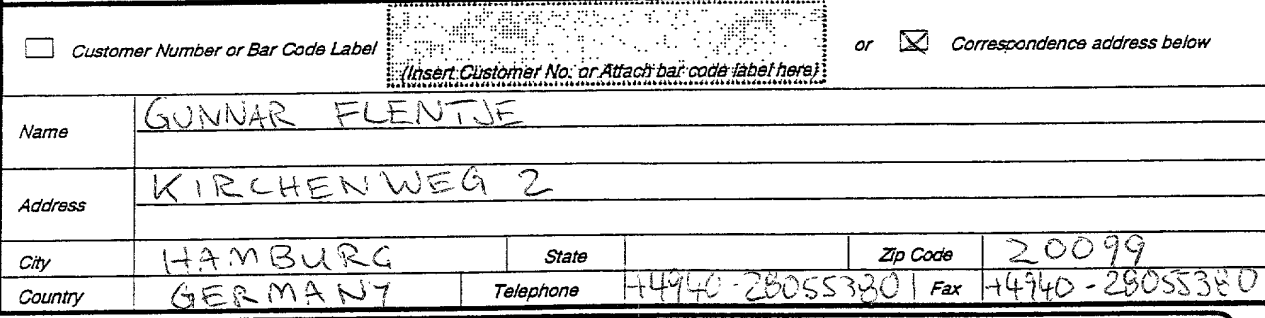 Customer Number or Bar Code Label (Insert Customer No. or Attach bar code label here) or Correspondence address below
Name GUNNAR FLENTJE
Address KIRCHENWEG 2
City HAMBURG State Zip Code 20099
Country GERMANY Telephone +4940-28055380 Fax +4940-28055380